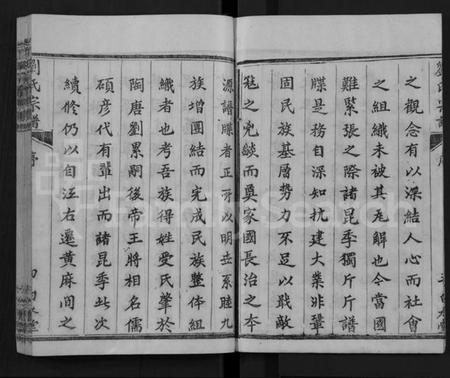 之觀念有以深結人心而社會
之組織未被其瓦解也今當國
難緊張之際諸昆季獨斤斤譜
牒是務自深知抗建大業非鞏
固民族基層勢力不足以戢敵
之兇燄而奠家國長治之本
源譜牒者正所以明世系睦九
族增團結而完成民族整体組
織者也考吾族得姓受氏肇於
陶唐劉累嗣後帝王將相名儒
碩彦代有輩出而諸昆季此次
續修仍以自江右遷黄麻間之
劉氏宗譜
序